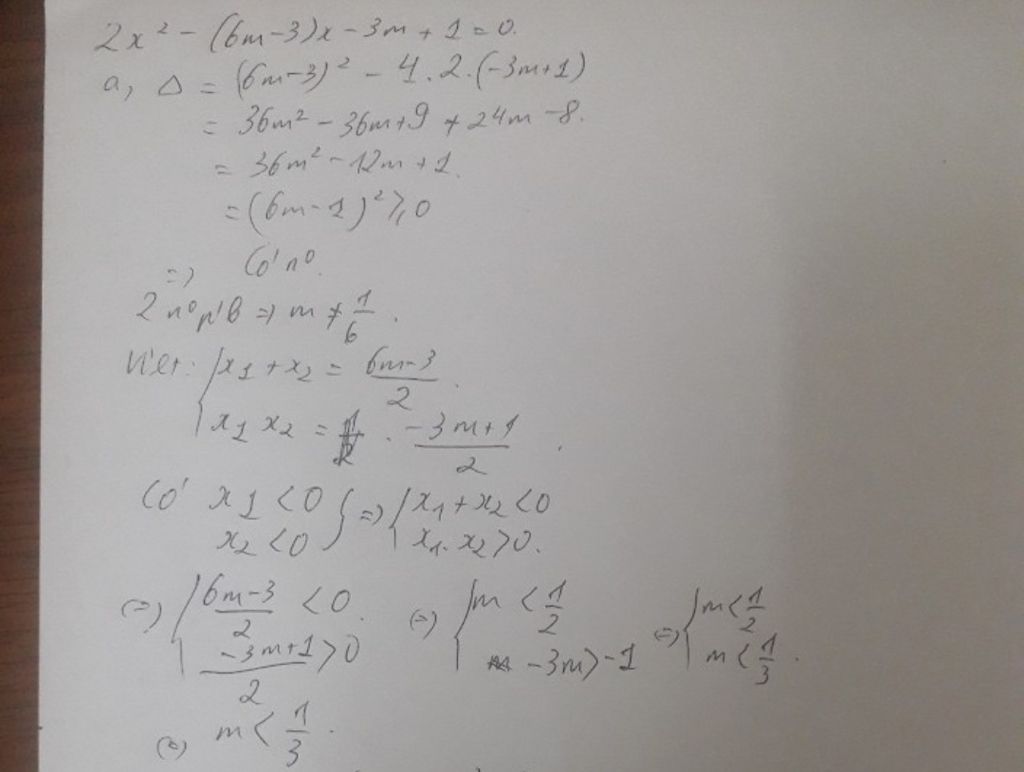 2x² - (6m-3)x - 3m + 1 = 0.
a, Δ = (6m-3)² - 4.2.(-3m+1)
= 36m² - 36m + 9 + 24m - 8.
= 36m² - 12m + 1.
= (6m-1)² ≥ 0
=> Có n⁰.
2 n⁰ p'b => m ≠ 1/6.
Viet: { x₁ + x₂ = (6m-3)/2.
x₁ x₂ = (-3m+1)/2.
Có x₁ < 0 } => { x₁ + x₂ < 0
x₂ < 0 x₁. x₂ > 0.
(=) { (6m-3)/2 < 0. (=) { m < 1/2 (=) { m < 1/2
(-3m+1)/2 > 0 -3m > -1 m < 1/3.
(=) m < 1/3.